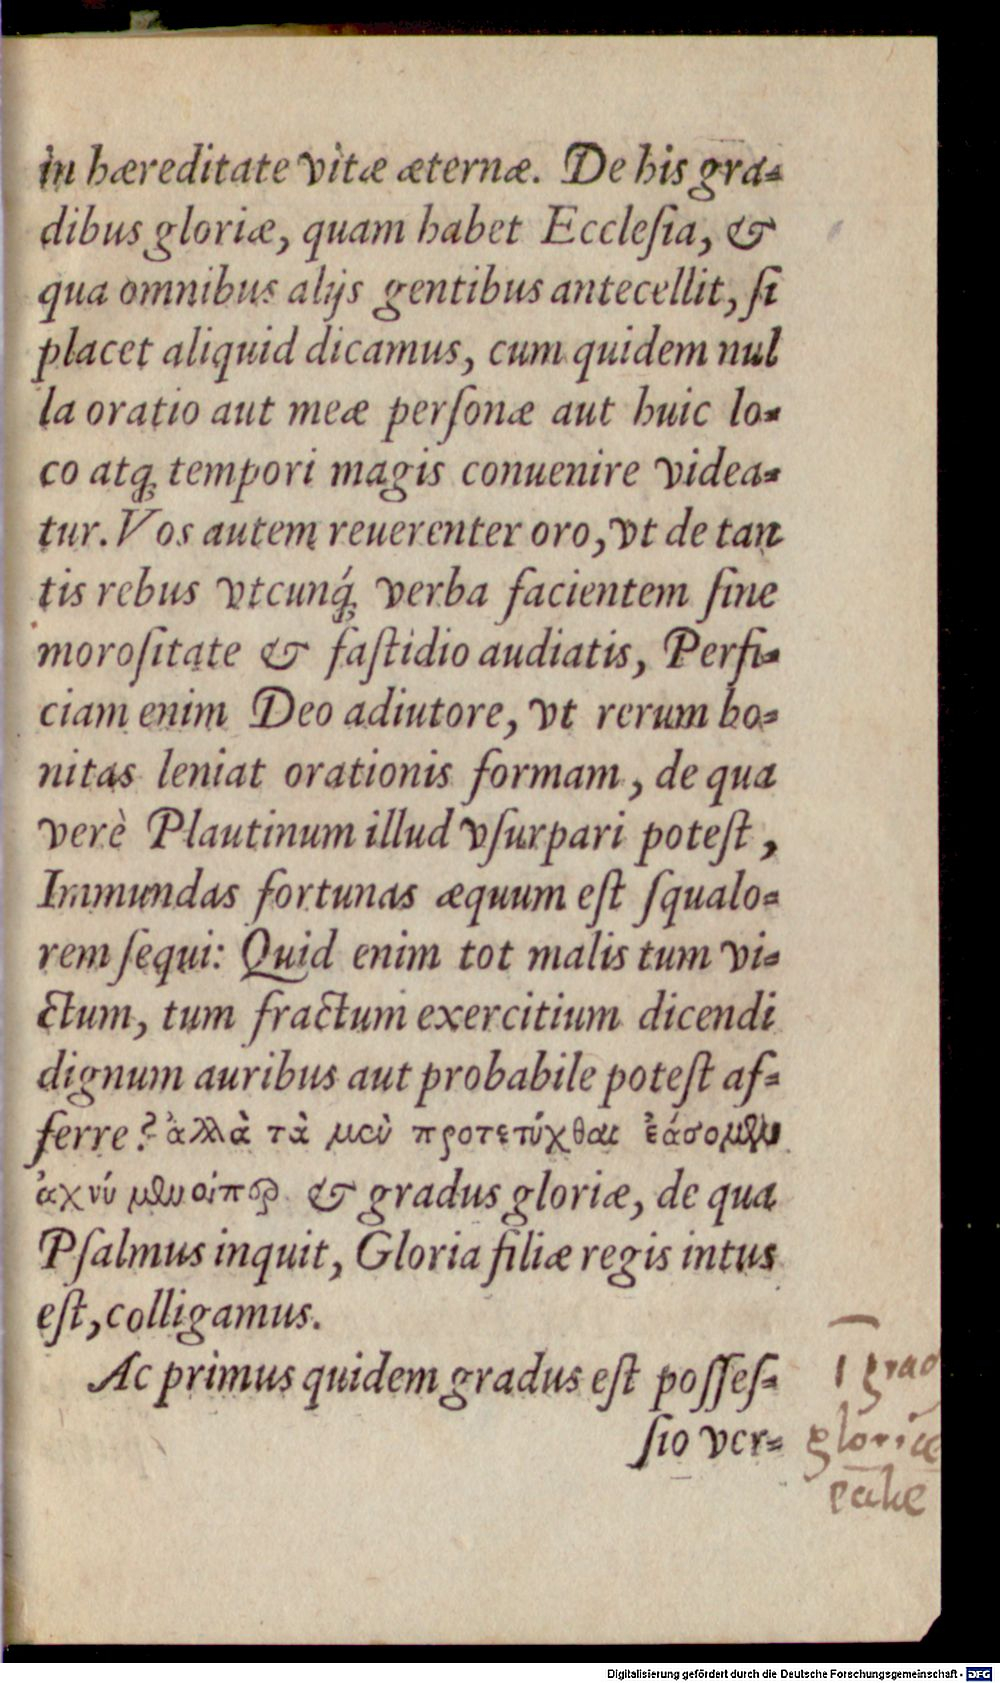 in hæreditate vitæ æternæ. De his gra-
dibus gloriæ, quam habet Ecclesia, &
qua omnibus alijs gentibus antecellit, si
placet aliquid dicamus, cum quidem nul
la oratio aut meæ personæ aut huic lo-
co atq; tempori magis conuenire videa-
tur. Vos autem reuerenter oro, vt de tan
tis rebus vtcunq́; verba facientem sine
morositate & fastidio audiatis, Perfi-
ciam enim Deo adiutore, vt rerum bo-
nitas leniat orationis formam, de qua
verè Plautinum illud vsurpari potest,
Immundas fortunas æquum est squalo-
rem sequi: Quid enim tot malis tum vi-
ctum, tum fractum exercitium dicendi
dignum auribus aut probabile potest af-
ferre? ἀλλὰ τὰ μεὺ προτετύχθαι ἐάσομεν
ἀχνύμενοίπερ & gradus gloriæ, de qua
Psalmus inquit, Gloria filiæ regis intus
est, colligamus.
Ac primus quidem gradus est posses-
sio ver-
1 grad
gloriæ